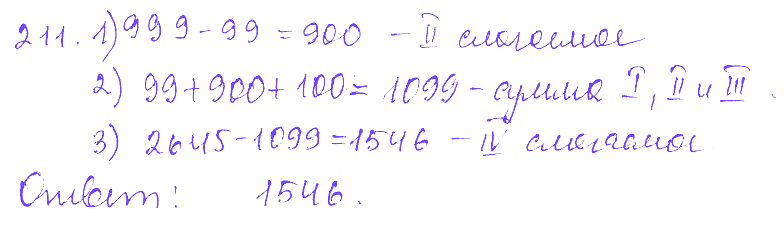 211. 1) 999 - 99 = 900 - II слагаемое
2) 99 + 900 + 100 = 1099 - сумма I, II и III.
3) 2645 - 1099 = 1546 - IV слагаемое
Ответ: 1546.